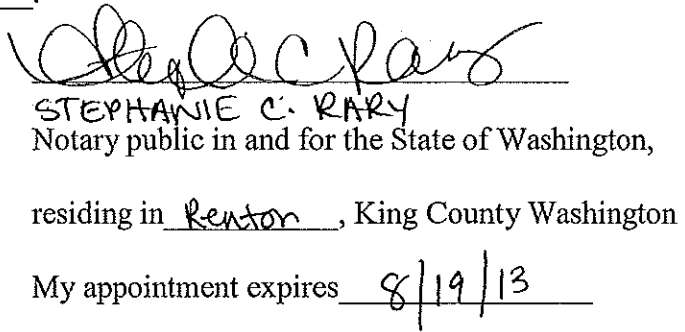 Stephanie C Rary
STEPHANIE C. RARY
Notary public in and for the State of Washington,
residing in Renton, King County Washington
My appointment expires 8/19/13